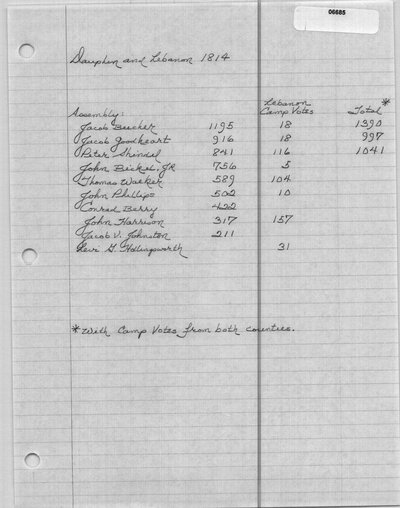 06685
Dauphin and Lebanon 1814
Lebanon *
Assembly: Camp Votes Total
Jacob Bucher 1195 18 1390
Jacob Goodheart 916 18 997
Peter Shindel 841 116 1041
John Bickel, JR 756 5
Thomas Walker 589 104
John Phillips 502 10
Conrad Berry 422
John Harrison 317 157
Jacob V. Johnston 211
Levi G. Hollingsworth 31
* With Camp Votes from both counties.